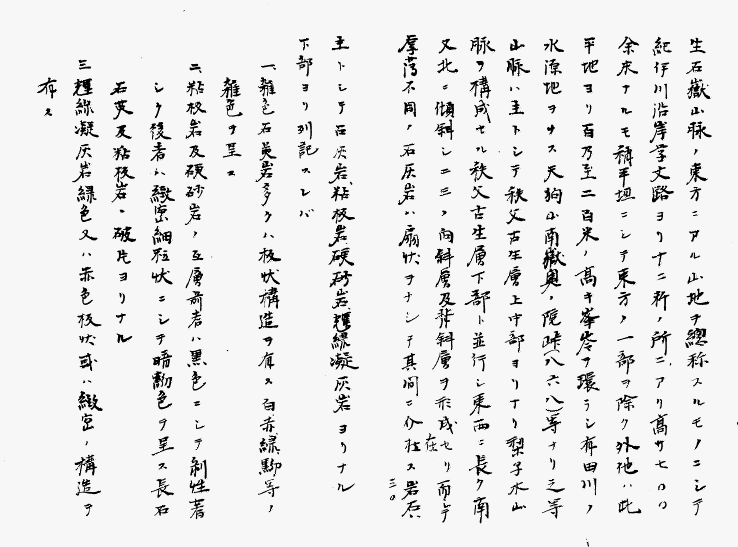 生石嶽山脉ノ東方ニアル山地ヲ總称スルモノニシテ
紀伊川沿岸学文路ヨリ十二粁ノ所ニアリ高サ七〇〇
余米ナルモ稍平坦ニシテ東方ノ一部ヲ除ク外他ハ此
平地ヨリ百乃至二百米ノ高キ峯巒ヲ環ラシ有田川ノ
水源地ヲナス天狗山南嶽奥ノ院峠(八六八)等ナリ之等
山脉ハ主トシテ秩父古生層上中部ヨリナリ梨子木山
脉ヲ構成セル秩父古生層下部ト並行シ東西ニ長ク南
又北ニ傾斜シ二三ノ向斜層及背斜層ヲ形成セリ而シテ
厚薄不同ノ石灰岩ハ扇状ヲナシテ其間ニ介在ス岩石ハ
主トシテ石灰岩粘板岩硬砂岩輝緑凝灰岩ヨリナル
下部ヨリ列記スレバ
一、雑色石英岩多クハ板状構造ヲ有ス白赤緑黝等ノ
雑色ヲ呈ス
二、粘板岩及硬砂岩ノ互層前者ハ黒色ニシテ剥性著
シク後者ハ緻密細粒状ニシテ暗黝色ヲ呈ス長石
石英及粘板岩ノ破片ヨリナル
三、輝緑凝灰岩緑色又ハ赤色板状或ハ緻密ノ構造ヲ
有ス
三〇